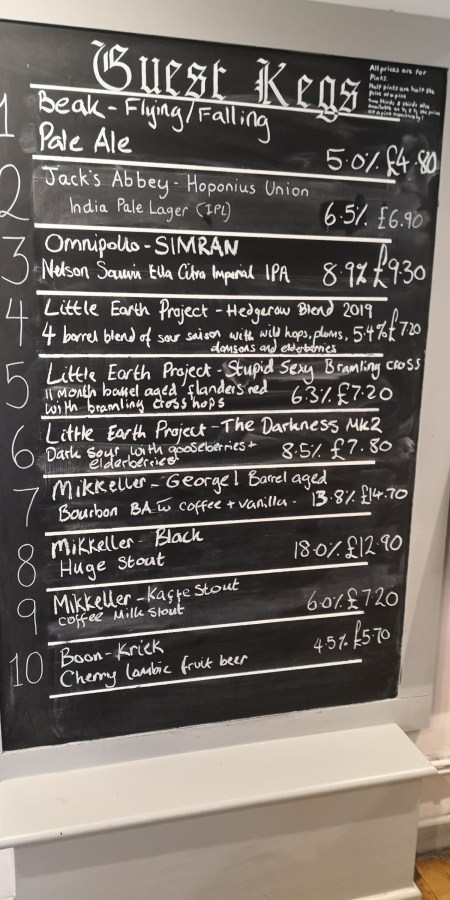 Guest Kegs
All prices are for
Pints.
Half pints are half the
price of a pint
1
Beak - Flying/Falling
Pale Ale
5.0% £4.80
2
Jack's Abbey - Hoponius Union
India Pale Lager (IPL)
6.5% £6.90
3
Omnipollo - SIMRAN
Nelson Sauvin Ella Citra Imperial IPA 8.9% £9.30
4
Little Earth Project - Hedgerow Blend 2019
4 barrel blend of sour saison with wild hops, plums, 5.4% £7.20
damsons and elderberries
5
Little Earth Project - Stupid Sexy Bramling Cross
11 month barrel aged flanders red
with bramling cross hops
6.3% £7.20
6
Little Earth Project - The Darkness Mk2
Dark sour with gooseberries +
elderberries
8.5% £7.80
7
Mikkeller - George! Barrel aged
Bourbon BA w coffee + vanilla - 13.8% £14.70
8
Mikkeller - Black
Huge Stout
18.0% £12.90
9
Mikkeller - Kaffe Stout
Coffee Milk Stout
6.0% £7.20
10
Boon - Kriek
Cherry lambic fruit beer
4.5% £5.70